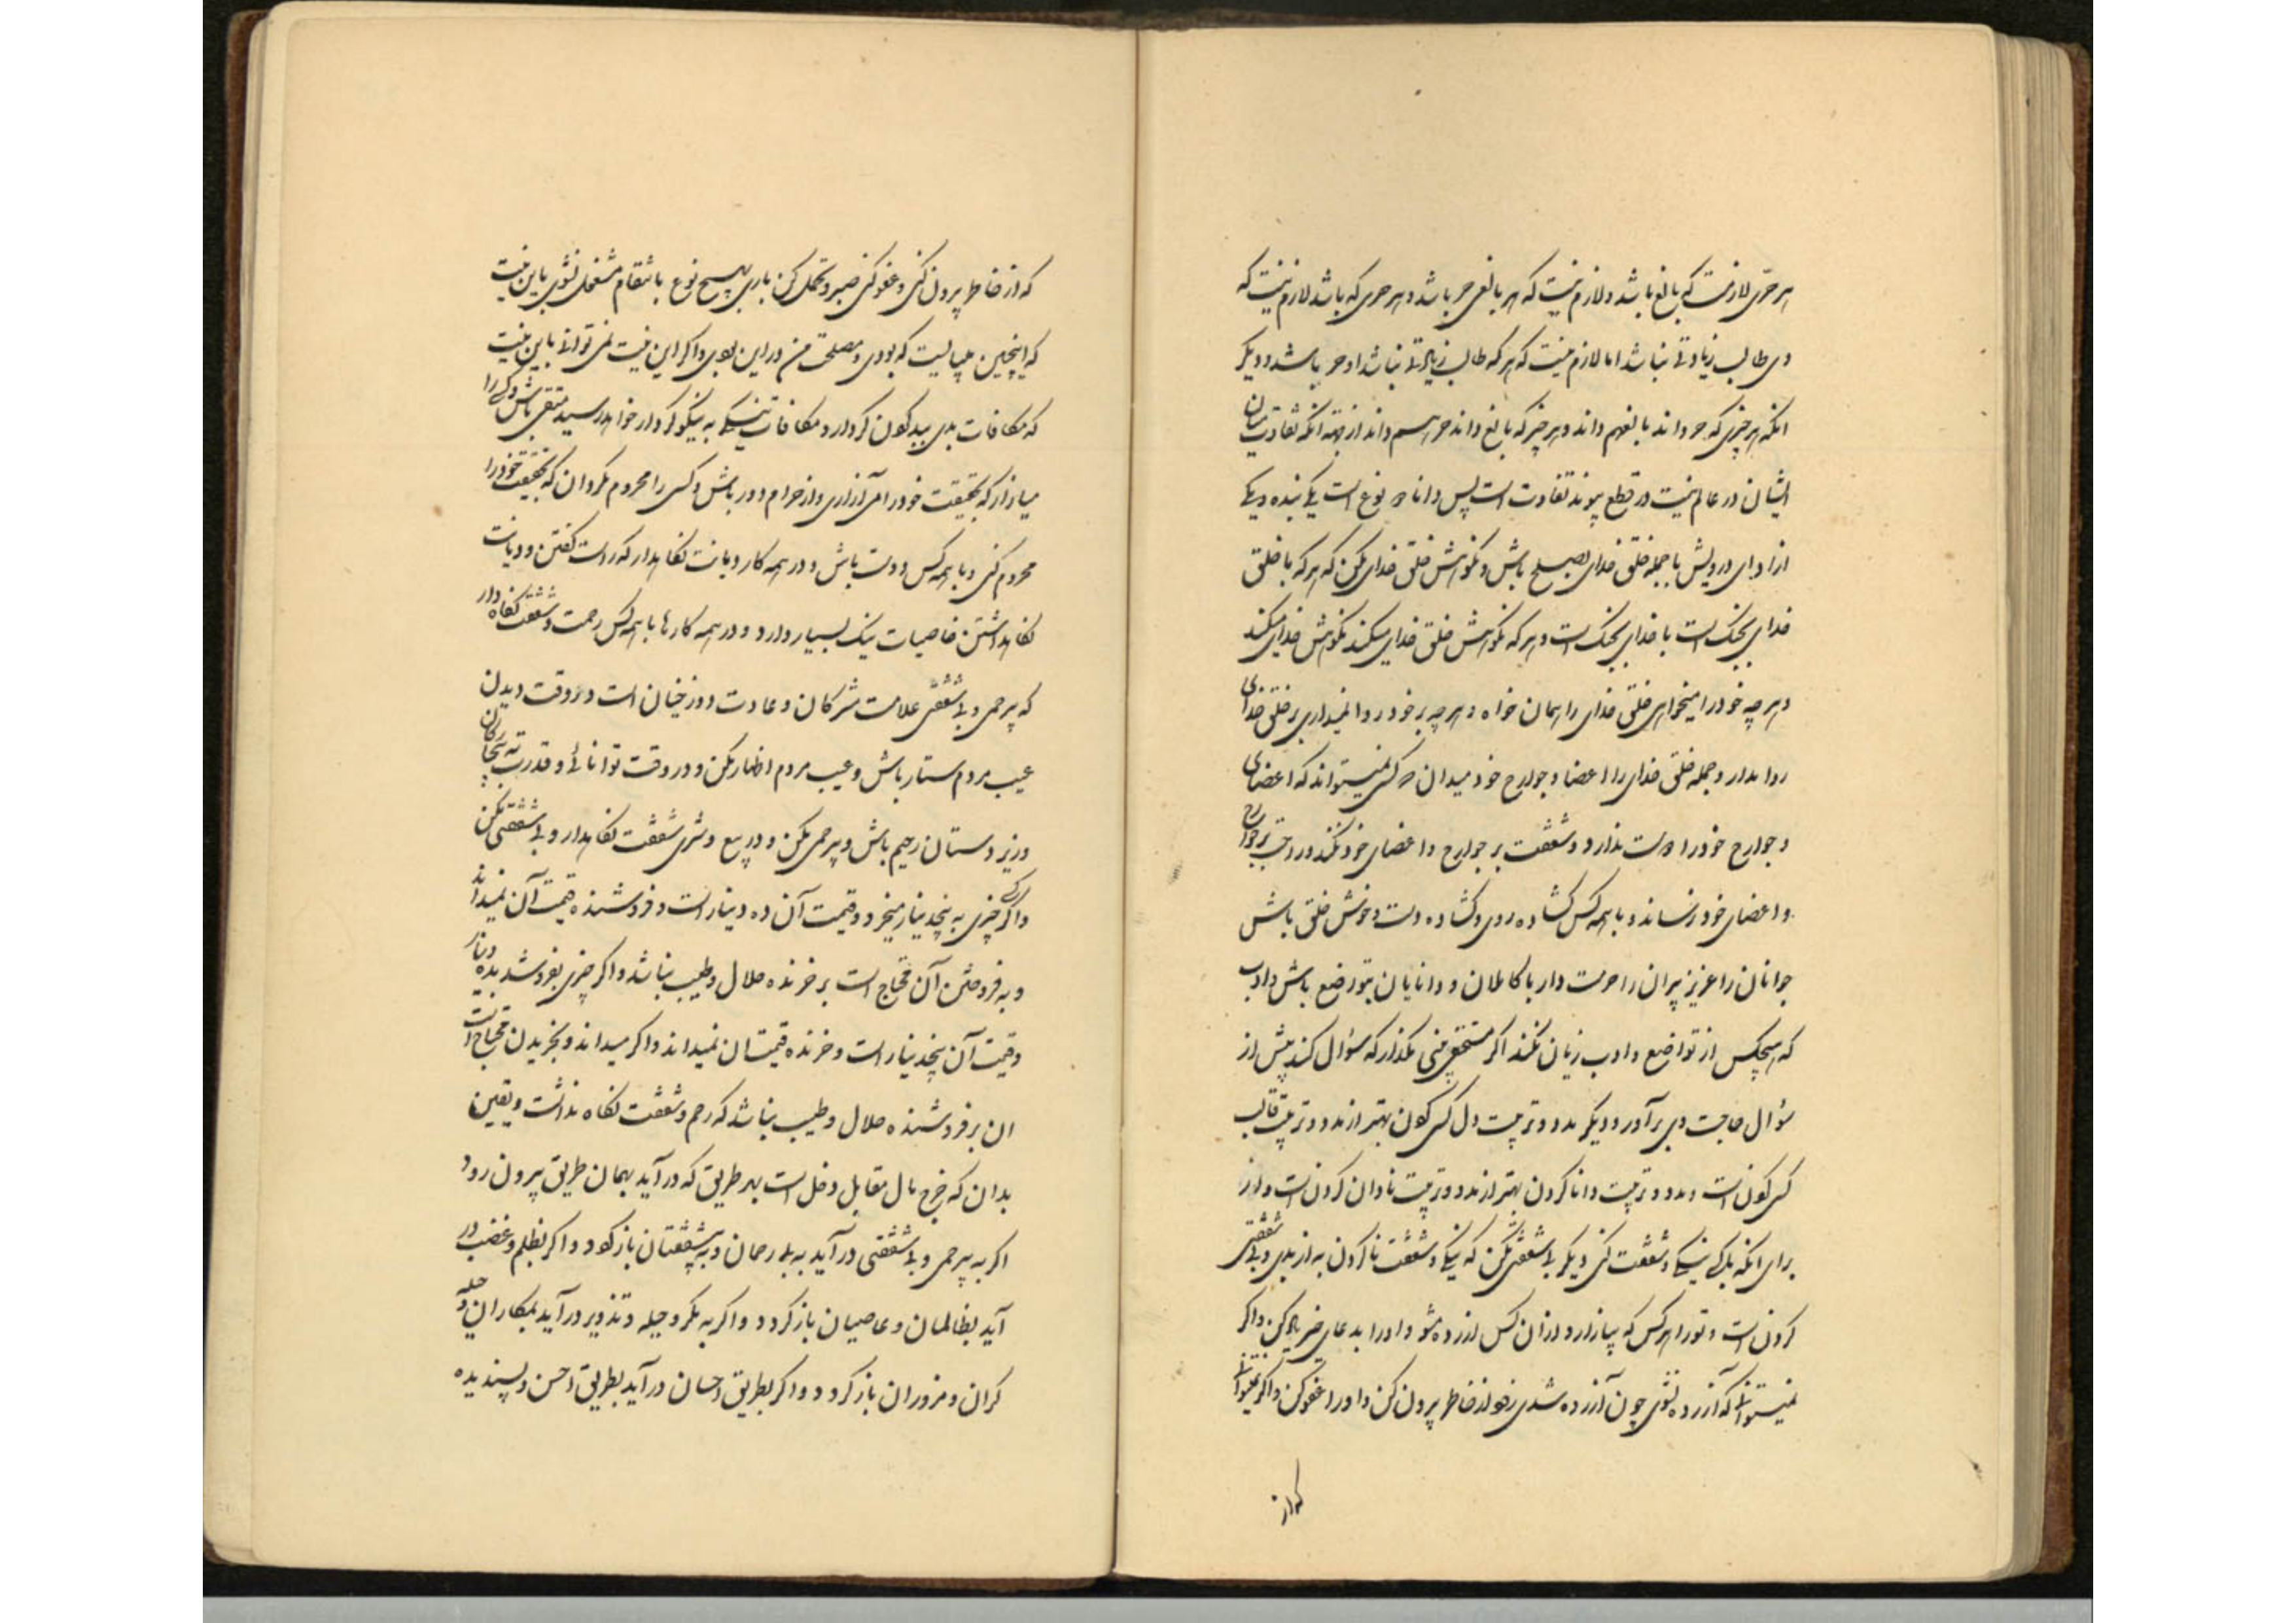 هر حری لازمست که بالغ باشد و لازم نیست که هر بالغی حر باشد و هر حری که باشد لازم نیست که
وی طالب زیادتی نباشد اما لازم نیست که هر که طالب زیادتی نباشد او حر باشد و دیگر
آنکه هر چیزی که حر داند بالغ هم داند و هر چیز که بالغ داند حر هم داند از بهر آنکه تفاوت میان
ایشان در علم نیست در قطع پیوند تفاوت است پس دانا دو نوع است یکی بنده و یکی
آزاد ای درویش با جمله خلق خدای بصلح باش و نکوهش خلق خدای مکن که هر که با خلق
خدای بجنک است با خدای بجنک است و هر که نکوهش خلق خدای میکند نکوهش خدای میکند
و هر چه خود را میخواهی خلق خدای را همان خواه و هر چه بر خود روا نمیداری بر خلق خدای
روا مدار و جمله خلق خدای را اعضا و جوارح خود میدان که کسی نمیتواند که اعضای
و جوارح خود را دوست ندارد و شفقت بر جوارح و اعضای خود نکند و راحت بر جوارح
و اعضای خود نرساند و با همه کس کشاده روی و کشاده دست و خوش خلق باش
جوانان را عزیز پیران را حرمت دار با کاملان و دانایان بتواضع باش و ادب
که هیچکس از تواضع و ادب زیان نکند اکر مستحقی بینی مکذار که سؤال کند پیش از
سؤال حاجت وی برآور و دیکر مدد و تربیت دل کسی کردن بهتر از مدد و تربیت قالب
کسی کردن است و مدد و تربیت دانا کردن بهتر از مدد و تربیت نادان کردن است و از
برای آنکه با یکی نیکی و شفقت کنی با دیکر بی شفقتی مکن که نیکی و شفقت ناکردن به از بدی و بی شفقتی
کردن است و تو را هر کس که بیازارد از آن کس آزرده مشو و او را بدعای خیر یاد کن و اکر
نمیتوانی که آزرده نشوی چون آزرده شدی زود از خاطر بیرون کن و او را عفو کن و اکر نمیتوانی
که از
که از خاطر بیرون کنی و عفو کنی صبر و تحمل کن باری بهیچ نوع بانتقام مشغول نشوی باین نیت
که اینچنین میبایست که بودی و مصلحت من در این بوی و اکر این نیت نمی توانی باین نیت
که مکافات بدی ببد کردن کردار و مکافات نیکی به نیکو کردار خواهد رسید متقی باش و کسی را
میازار که بحقیقت خود را می آزاری و از حرام دور باش و کسی را محروم مکردان که بحقیقت خود را
محروم کنی و با همه کس دوست باش و در همه کار دیانت نکاهدار که راست کفتن و دیانت
نکاهداشتن خاصیات نیک بسیار دارد و در همه کارها با همه کس رحمت و شفقت نکاه دار
که بیرحمی و بی شفقتی علامت مشرکان و عادت دوزخیان است و در وقت دیدن
عیب مردم ستار باش و عیب مردم اظهار مکن و در وقت توانائی و قدرت به بیچارکان
و زیردستان رحیم باش و بیرحمی مکن و در بیع و شری شفقت نکاهدار و بی شفقتی مکن
و اکر کسی چیزی به پنجدینار میخرد و قیمت آن ده دینار است و فروشنده قیمت آن نمیداند
و به فروختن آن محتاج است بر خرنده حلال و طیب نباشد و اکر چیزی بفروشد بده دینار
و قیمت آن پنجدینار است و خرنده قیمت آن نمیداند و اکر میداند و بخریدن محتاج است
ان بر فروشنده حلال و طیب نباشد که رحم و شفقت نکاه نداشت و یقین
بدان که خرج مال مقابل دخل است بهر طریق که درآید بهمان طریق بیرون رود
اکر به بیرحمی و بی شفقتی درآید به بی رحمان و بی شفقتان باز کردد و اکر بظلم و غضب در
آید بظالمان و عاصیان باز کردد و اکر به مکر و حیله و تزویر درآید بمکاران و حیله
کران و مزوران باز کردد و اکر بطریق احسان درآید بطریق احسن و پسندیده